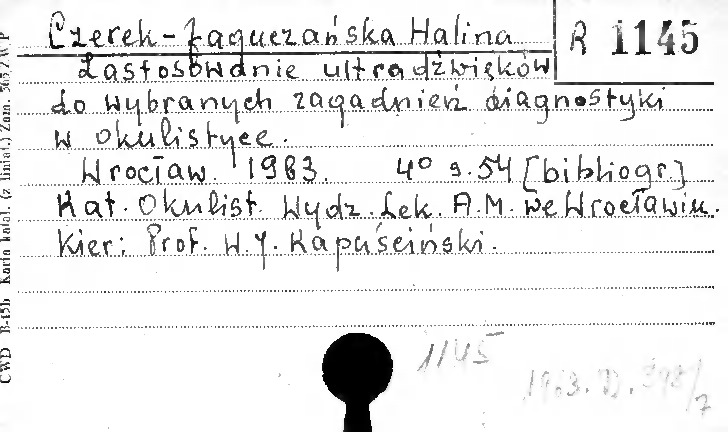 Czerek-Jaguczańska Halina R 1145
Zastosowanie ultradźwięków
do wybranych zagadnień diagnostyki
w okulistyce.
Wrocław. 1963. 4° s. 54 [bibliogr.]
Kat. Okulist. Wydz. Lek. A.M. we Wrocławiu.
Kier: Prof. W. J. Kapuściński.
1145
1963. D. 398/7
CWD B-15b Karta katal. (z liniat.) Zam.